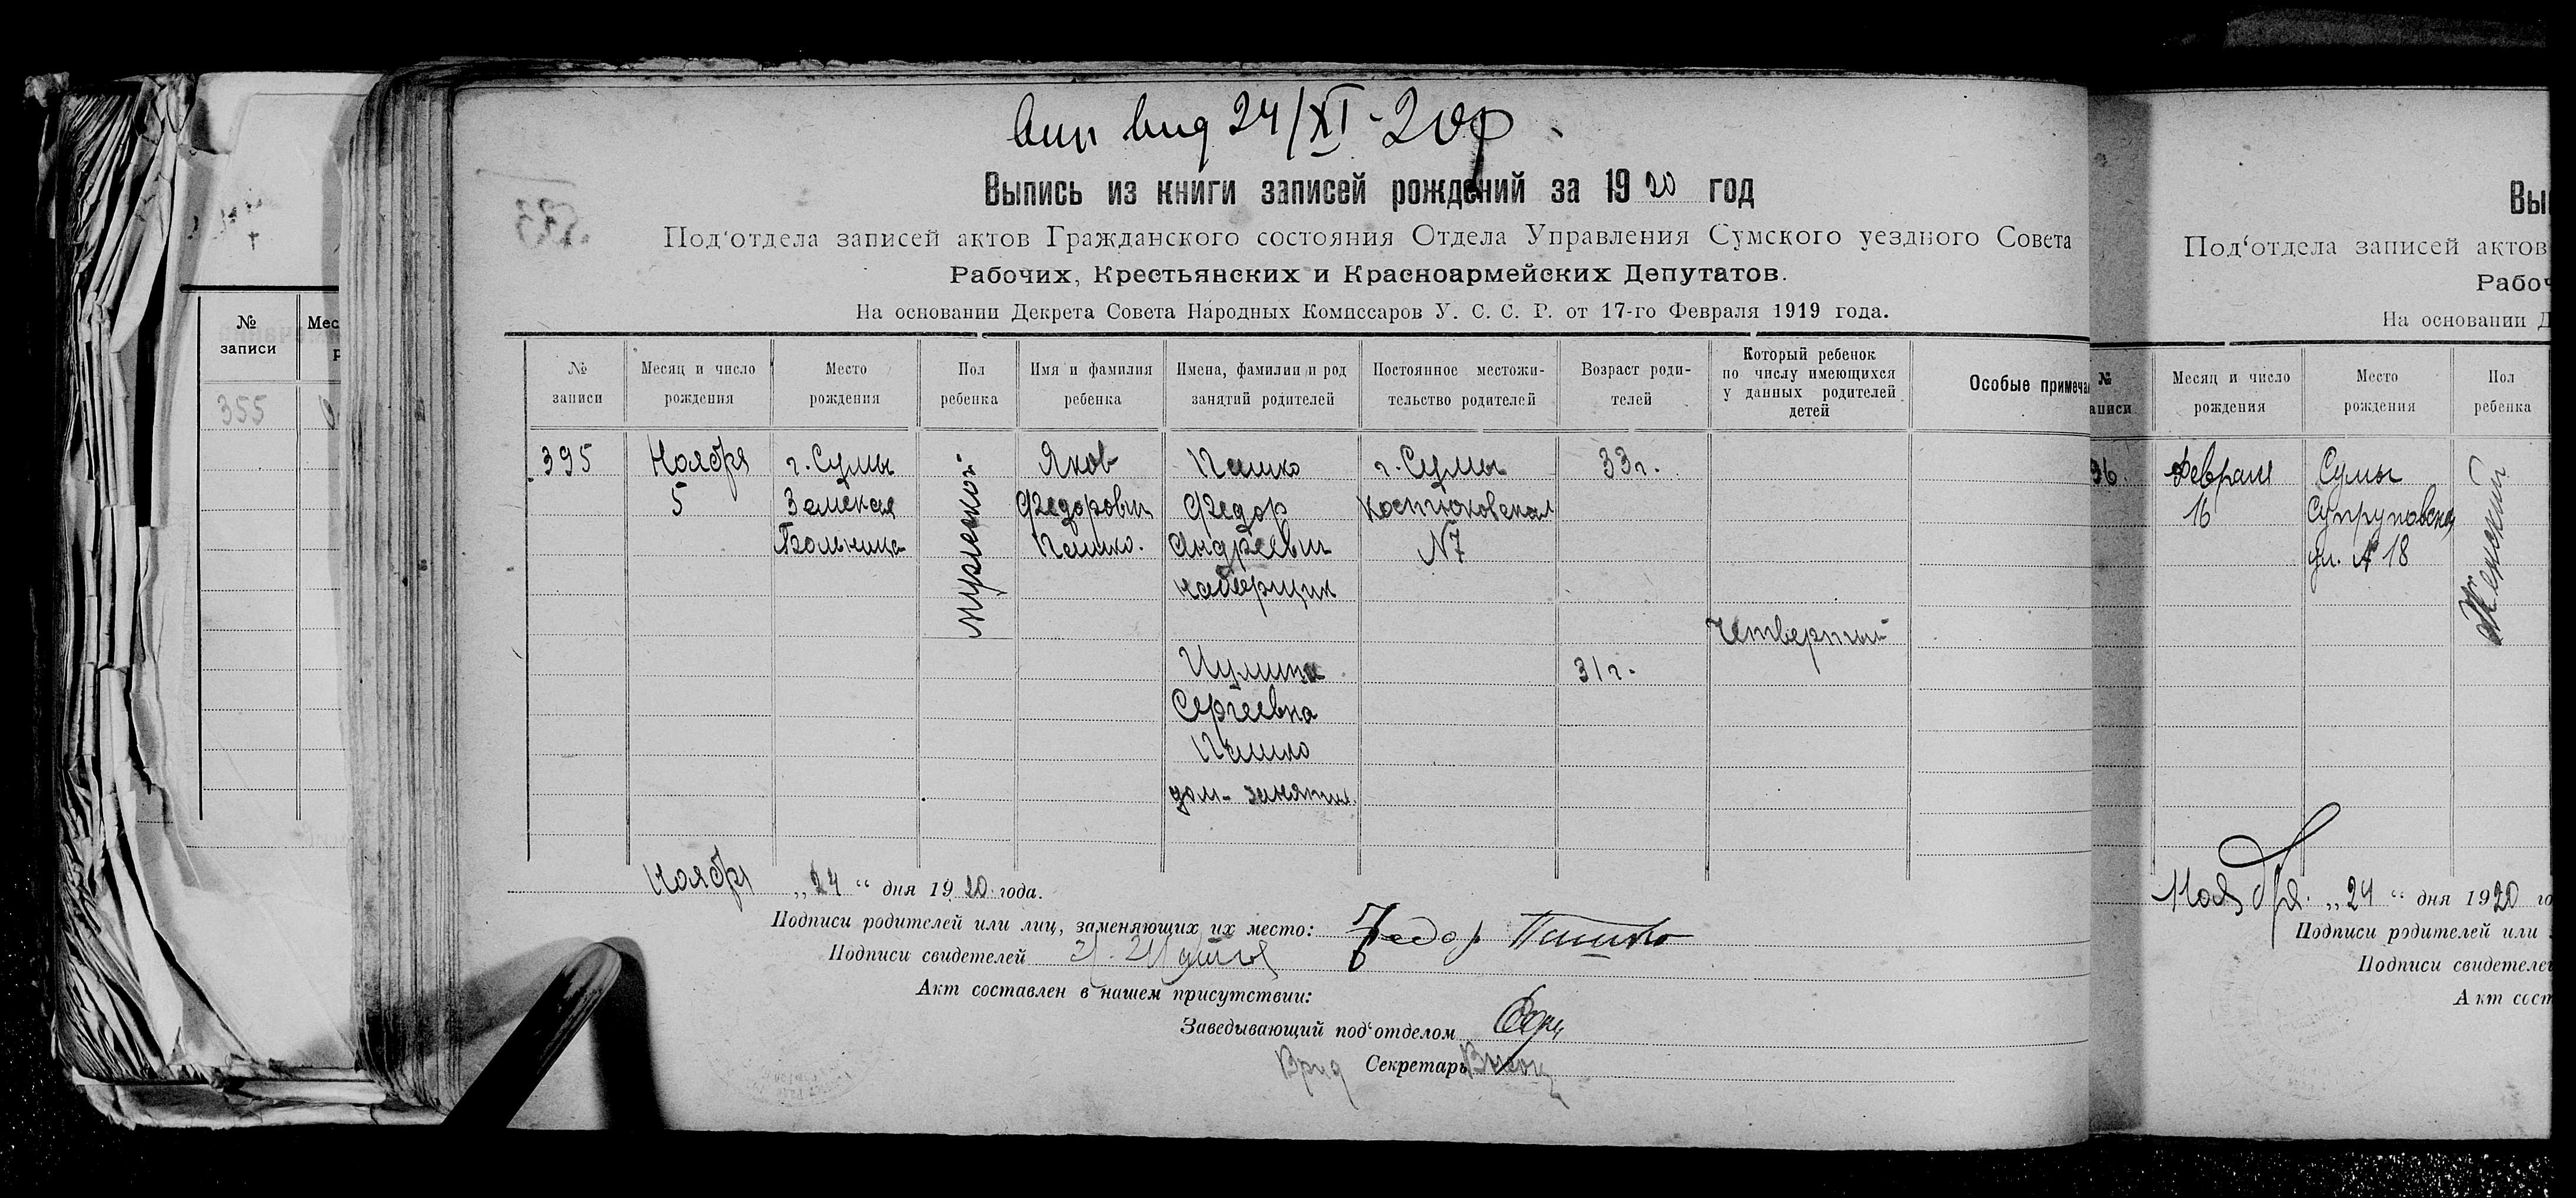 вып выд 24/XI-20 р.
Выпись из книги записей рождений за 1920 год
Под‘отдела записей актов Гражданского состояния Отдела Управления Сумского уездного Совета
Рабочих, Крестьянских и Красноармейских Депутатов.
На основании Декрета Совета Народных Комиссаров У. С. С. Р. от 17-го Февраля 1919 года.
№ записи
Месяц и число рождения
Место рождения
Пол ребенка
Имя и фамилия ребенка
Имена, фамилии и род занятий родителей
Постоянное местожи-тельство родителей
Возраст роди-телей
Который ребенок по числу имеющихся у данных родителей детей
Особые примеча
395
Ноября
5
г. Сумы
Земская
Больница
мужеской
Яков
Федорович
Пашко.
Пашко
Федор
Андреевич
Сергеевна
Пашко
дом. занятия.
г. Сумы
Костюковская
№7
33 г.
31 г.
Четвертый
Ноября „24“ дня 1920 года.
Подписи родителей или лиц, заменяющих их место: Федор Пашко
Подписи свидетелей
Акт составлен в нашем присутствии:
Заведывающий под‘отделом
Врид Секретарь
№ записи
Мес
355
Вы
Под‘отдела записей актов
Рабоч
На основании Д
№ аписи
Месяц и число рождения
Место рождения
Пол ребенка
96.
Февраля
16
Сумы
Супруновская
ул. № 18
Женский
Ноября „24“ дня 1920 го
Подписи родителей или
Подписи свидетелей
Акт сост